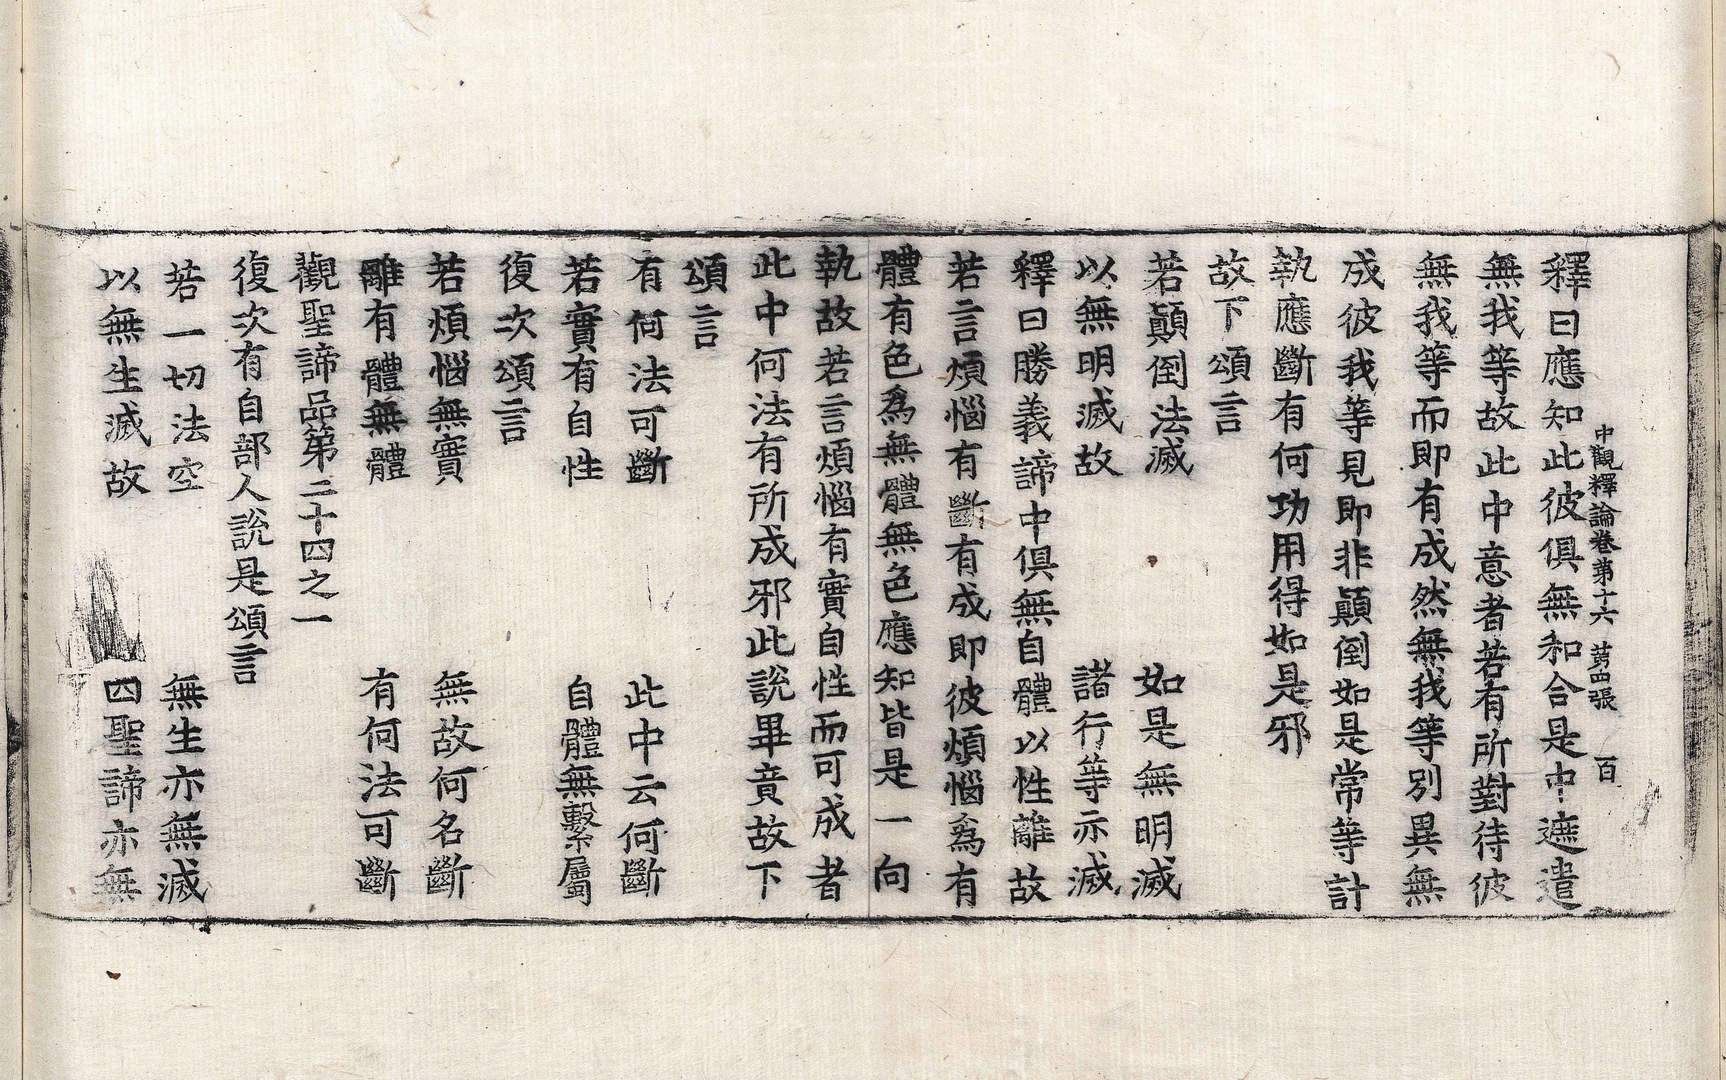 中觀釋論卷第十六 第四張 百
釋曰應知此彼俱無和合是中遮遣
無我等故此中意者若有所對待彼
無我等而即有成然無我等別異無
成彼我等見即非顛倒如是常等計
執應斷有何功用得如是邪
故下頌言
若顛倒法滅 如是無明滅
以無明滅故 諸行等亦滅
釋曰勝義諦中俱無自體以性離故
若言煩惱有斷有成即彼煩惱為有
體有色為無體無色應知皆是一向
執故若言煩惱有實自性而可成者
此中何法有所成邪此說畢竟故下
頌言
有何法可斷 此中云何斷
若實有自性 自體無繫屬
復次頌言
若煩惱無實 無故何名斷
離有體無體 有何法可斷
觀聖諦品第二十四之一
復次有自部人說是頌言
若一切法空 無生亦無滅
以無生滅故 四聖諦亦無